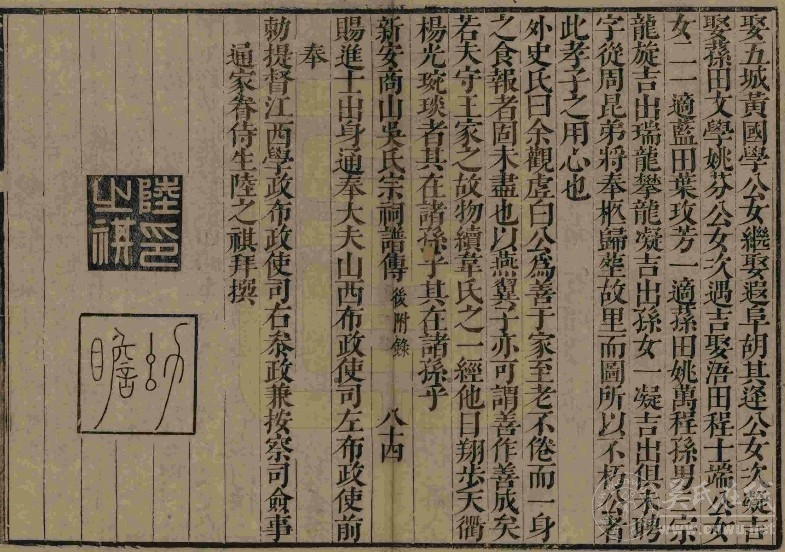 娶五城黃國學公女繼娶遐阜胡其逢公女次凝吉
娶蓀田文學姚芬公女次遇吉娶浯田程士端公女
女二一適藍田葉玫芳一適蓀田姚萬程孫男二宗
龍旋吉出瑞龍攀龍凝吉出孫女一凝吉出俱未聘
字從周昆弟將奉柩歸塋故里而圖所以不朽公者
此孝子之用心也
外史氏曰余觀虛白公為善于家至老不倦而一身
之食報者固未盡也以燕翼子亦可謂善作善成矣
若夫守王家之故物續韋氏之一經他日翔步天衢
楊光琬琰者其在諸孫乎其在諸孫乎
新安商山吳氏宗祠譜傳 後附錄 八十四
賜進士出身通奉大夫山西布政使司左布政使前
奉
勅提督江西學政布政使司右叅政兼按察司僉事
通家眷侍生陸之祺拜撰
陸之祺印
幼瞻
吴氏在线
www.cnwu.net